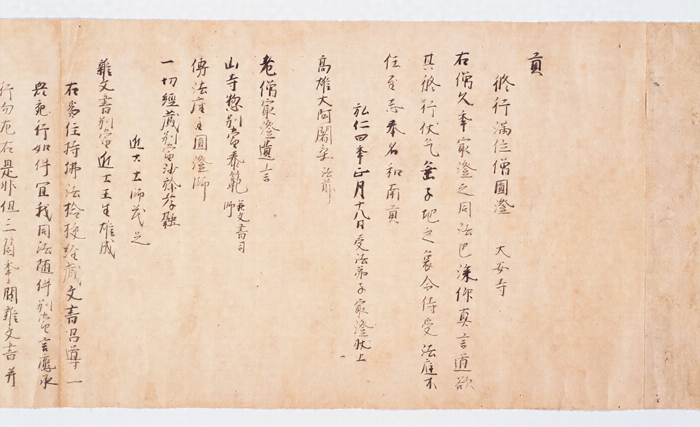 貢
修行満位僧圓澄 大安寺
右僧久年最澄之同法也深仰真言道欲
其修行伏乞垂子地之哀令侍受法庭不
任至志奉名和南貢
弘仁四年正月十八日受法弟子最澄状上
高雄大阿闍梨法前
老僧最澄遺言
山寺惣別當泰範師兼文書司
傳法座主圓澄師
一切經蔵別當沙弥孝融
近士土師茂足
雜文書別當近士壬生雄成
右為住持佛法檢挍經蔵文書唱導一
衆充行如件宜我同法随件別當言應承
行勿左右是非但三箇年間雜文書并